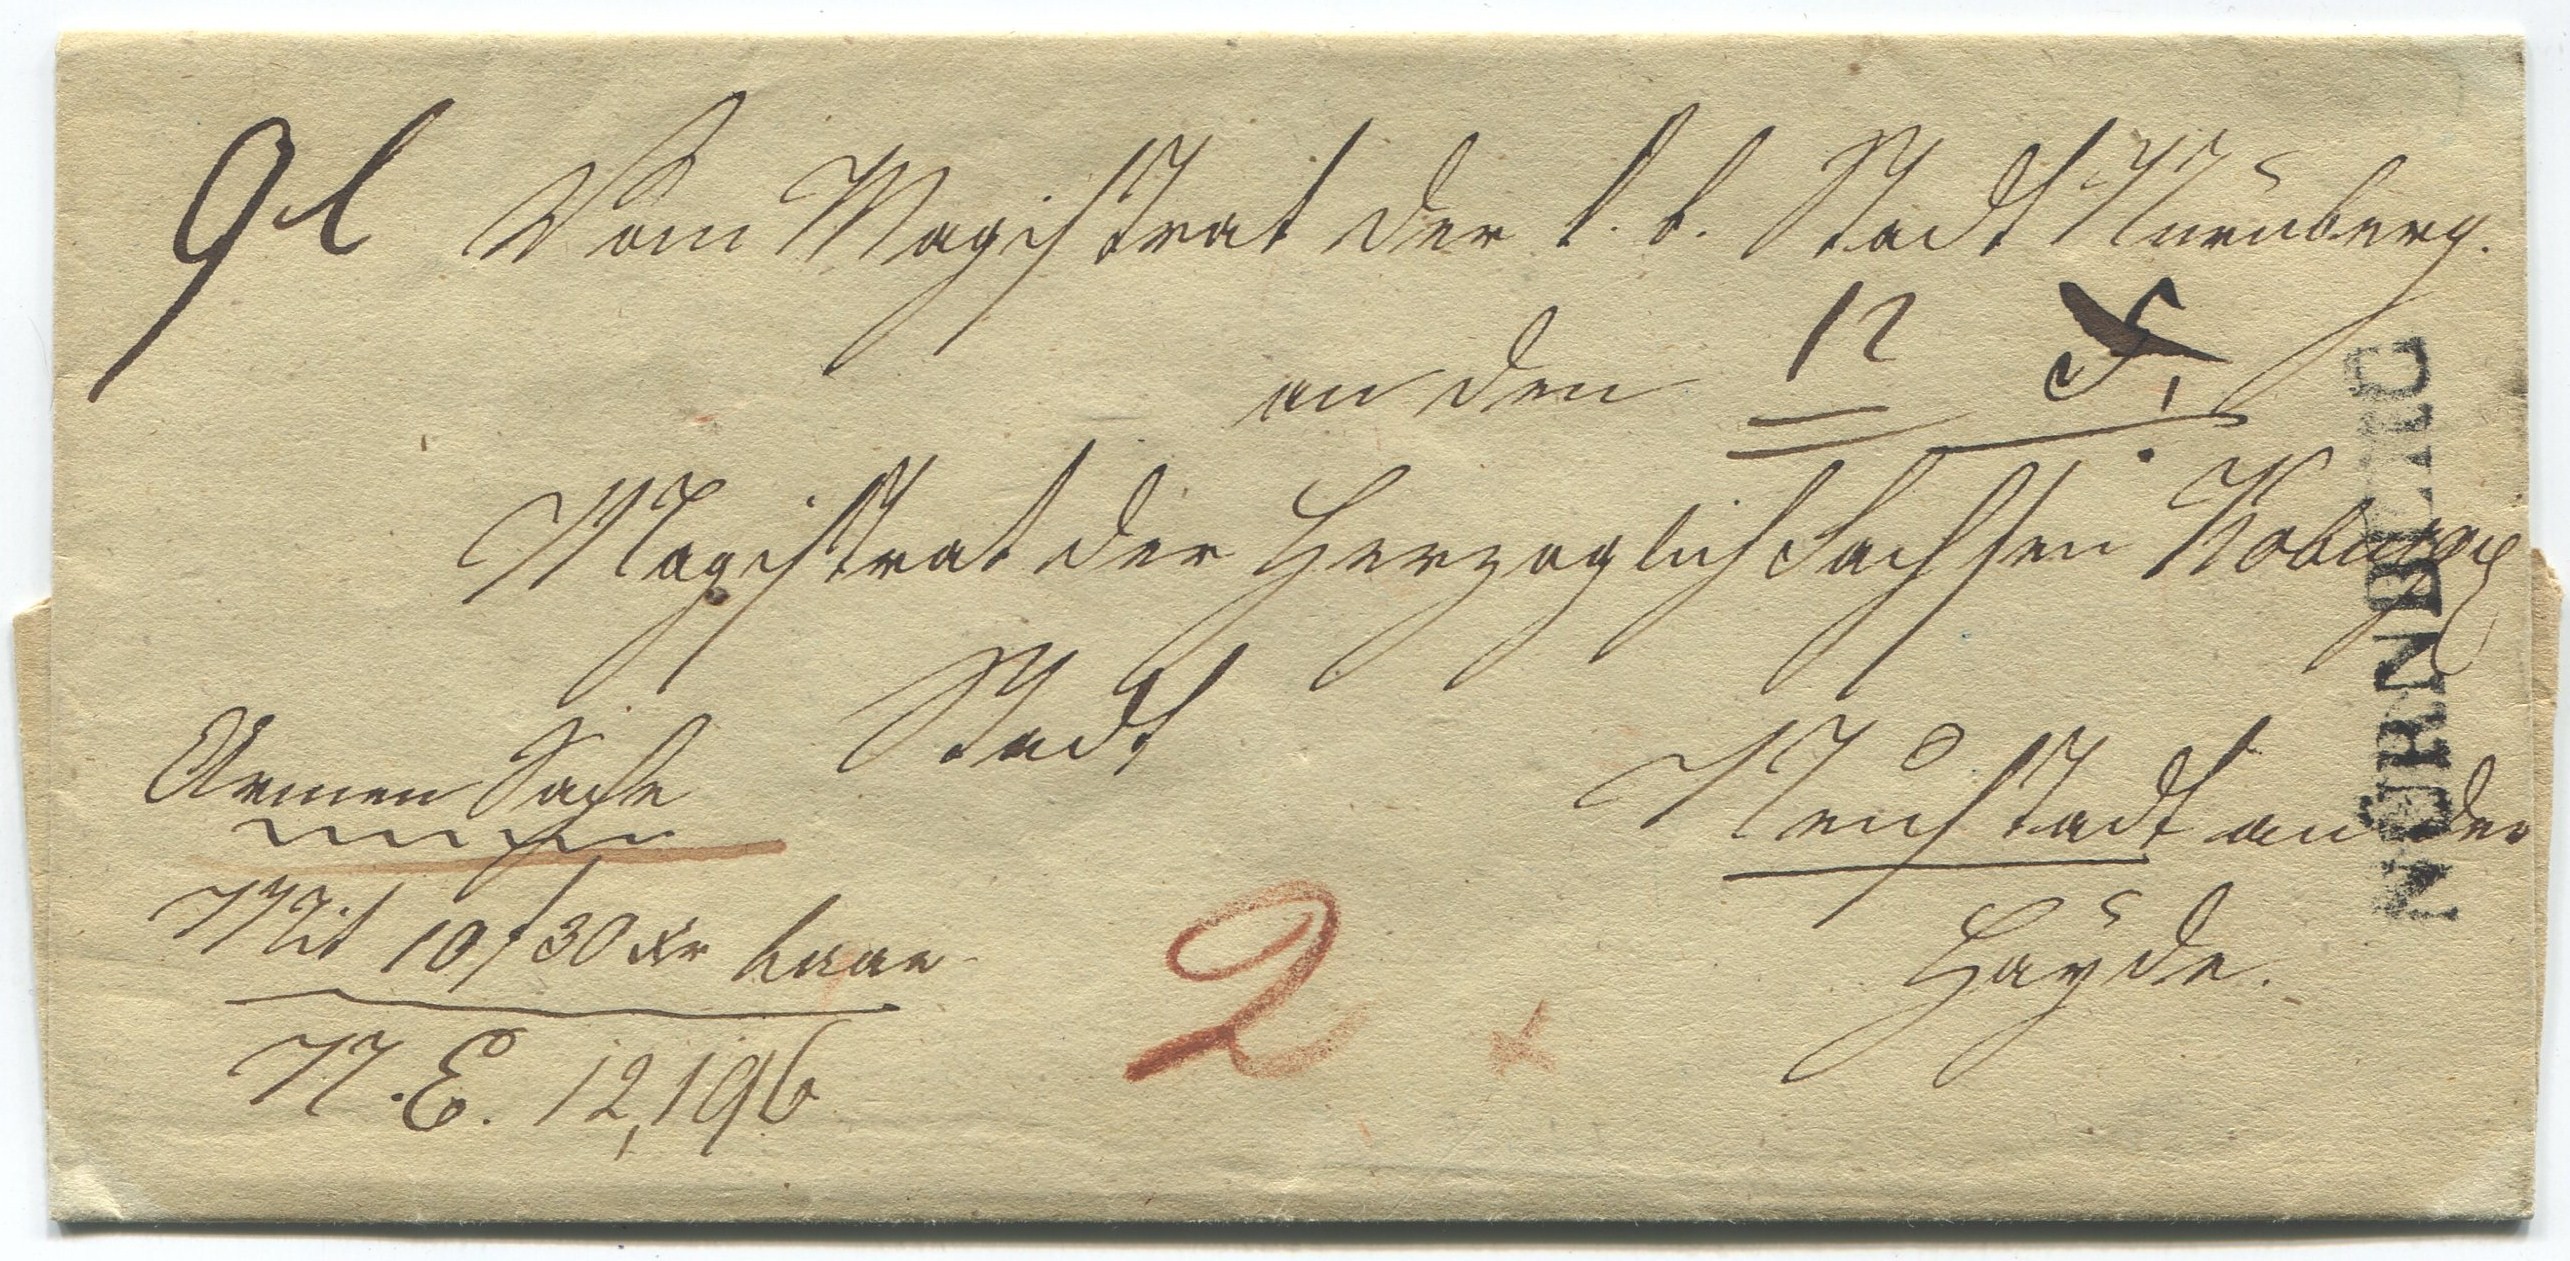 Vom Magistrat der k. b. Stadt Nürnberg.
an den 12
Magistrat der Herzoglich Sachsen Koburg
Stadt
Neustadt an der
Hayde.
Armen Sache
Mit 10 f 30 Xr baar
N. E. 12,196
2
NÜRNBERG